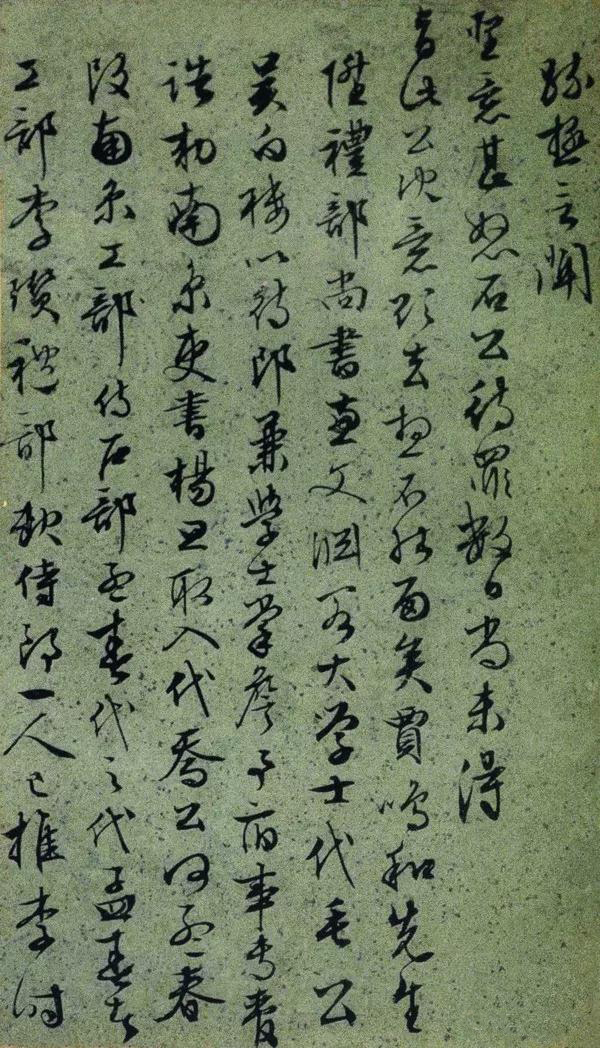 極言聞
聖意甚怒石公待罪數日尚未得
旨此公決意欲去想不能留矣賈鳴和先生
陞禮部尚書兼文淵閣大學士代毛公
吳白樓以侍郎兼學士掌詹事府事專管
誥勅南京吏書楊旦取入代喬公何孟春
改南京工部侍部孟春代之代孟春者
工部李瓚禮部缺侍郎一人已推李時